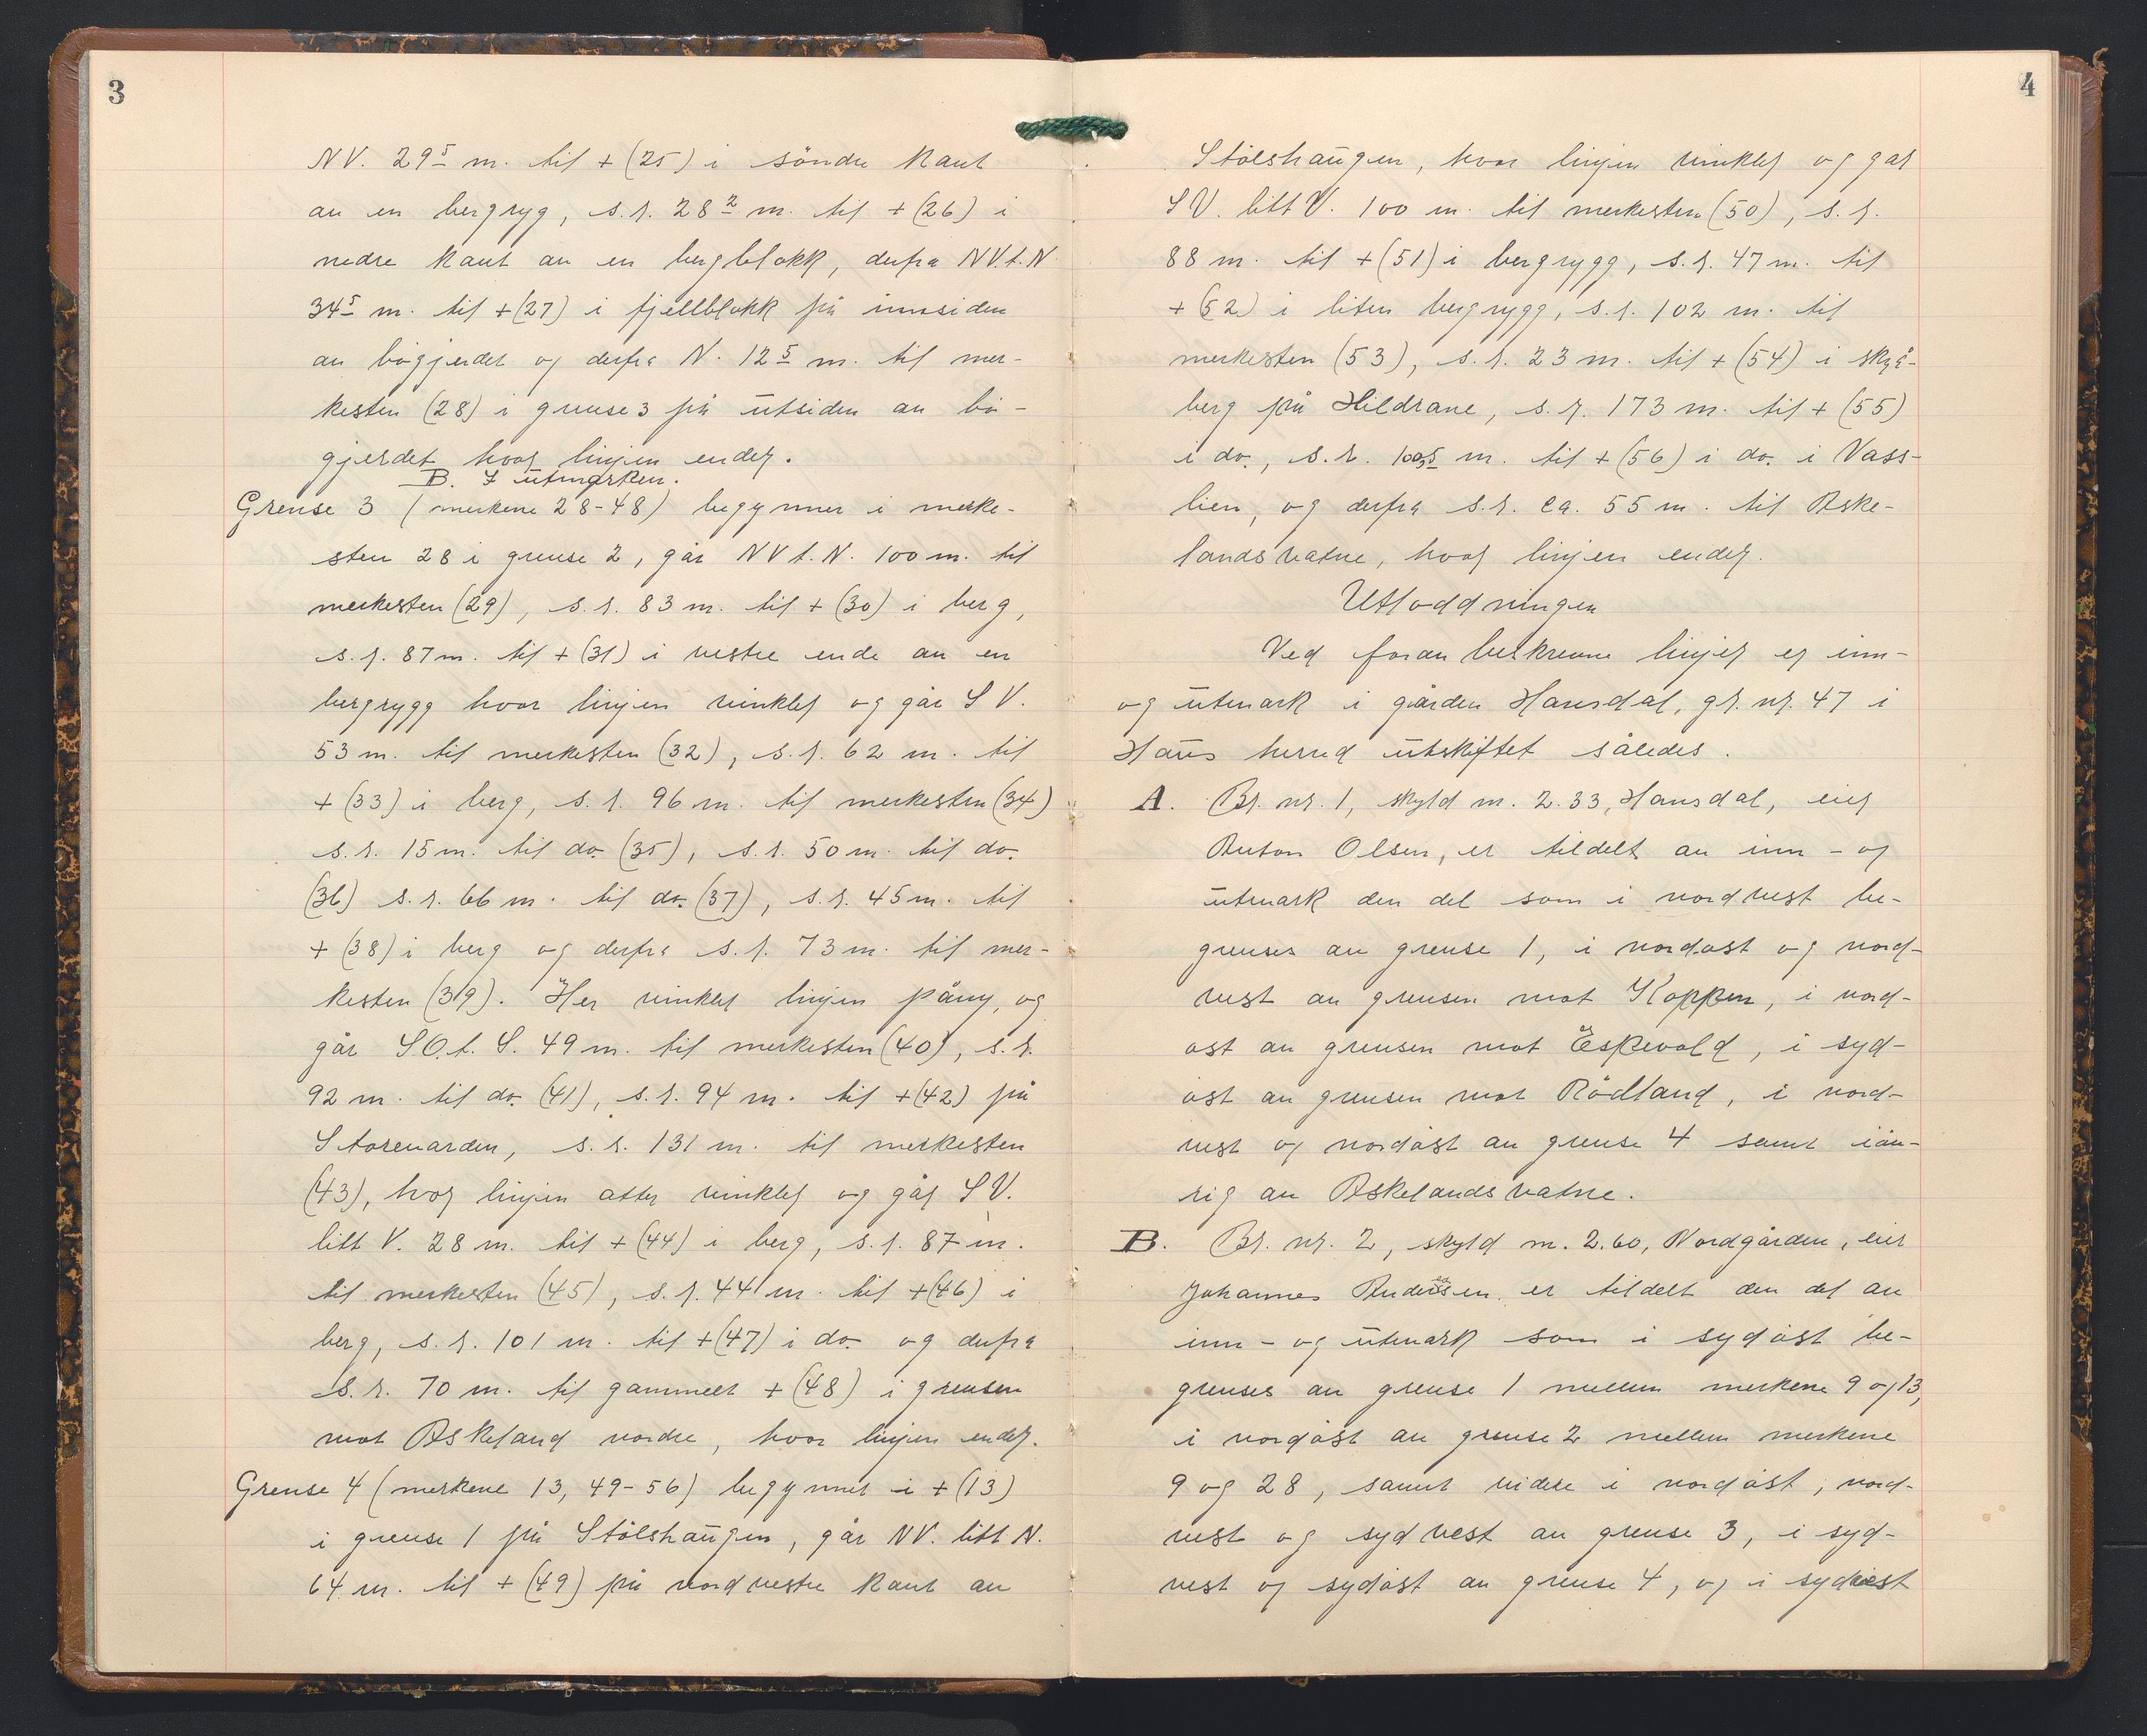 3
NV. 29⁵ m. til + (25) i söndre kant
av en bergryg, s.r. 28² m. til + (26) i
nedre kant av en bergblokk, derfra NV.t.N.
34⁵ m. til + (27) i fjellblokk på innsiden
av bögjerdet og derfra N. 12⁵ m. til mer-
kesten (28) i grense 3 på utsiden av bö-
gjerdet hvor linjen ender.
B. I utmarken.
Grense 3 (merkene 28-48) begynner i merke-
sten 28 i grense 2, går NV t. N. 100 m. til
merkesten (29), s.r. 83 m. til + (30) i berg,
s.r. 87 m. til + (31) i vestre ende av en
bergrygg hvor linjen vinkler og går S V.
53 m. til merkesten (32), s.r. 62 m. til
+ (33) i berg, s.r. 96 m. til merkesten (34)
s.r. 15 m. til do. (35), s.r. 50 m. til do.
(36) s.r. 66 m. til do. (37), s.r. 45 m. til
+ (38) i berg og derfra s.r. 73 m. til mer-
kesten (39). Her vinkler linjen påny, og
går SÖ.t. S. 49 m. til merkesten (40), s.r.
92 m. til do. (41), s.r. 94 m. til + (42) på
Storevarden, s.r. 131 m. til merkesten
(43), hvor linjen atter vinkler og går S V.
litt V. 28 m. til + (44) i berg, s.r. 87 m.
til merkesten (45), s.r. 44 m. til + (46) i
berg, s.r. 101 m. til + (47) i do. og derfra
s.r. 70 m. til gammelt + (48) i grensen
mot Askeland nordre, hvor linjen ender.
Grense 4 (merkene 13, 49-56) begynner i + (13)
i grense 1 på Stölshaugen, går NV. litt N.
64 m. til + (49) på nordvestre kant av
4
Stölshaugen, hvor linjen vinkler og går
SV. litt V. 100 m. til merkesten (50), s.r.
88 m. til + (51) i bergrygg, s.r. 47 m. til
+ (52) i liten bergrygg, s.r. 102 m. til
merkesten (53), s.r. 23 m. til + (54) i skrå-
berg på Hildrane, s.r. 173 m. til + (55)
i do., s.r. 100,5 m. til + (56) i do. i Vass-
lien, og derfra s.r. ca. 55 m. til Aske-
landsvatne, hvor linjen ender.
Utloddningen
Ved foran beskrevne linjer er inn-
og utmark i gården Hansdal, gr. nr. 47 i
Haus herred utskiftet således.
A. Br. nr. 1, skyld m. 2.33, Hansdal, eier
Anton Olsen, er tildelt av inn- og
utmark den del som i nordvest be-
grenses av grense 1, i nordöst og nord-
vest av grensen mot Koppen, i nord-
öst av grensen mot Espevold, i syd-
öst av grensen mot Rödland, i nord-
vest og nordöst av grense 4 samt iöv-
rig av Askelandsvatne.
B. Br. nr. 2, skyld m. 2.60, Nordgården, eier
Johannes Andersen er tildelt den del av
inn- og utmark som i sydöst be-
grenses av grense 1 mellem merkene 9 og 13,
i nordöst av grense 2 mellem merkene
9 og 28, samt videre i nordöst, nord-
vest og sydvest av grense 3, i syd-
vest og sydöst av grense 4, og i sydvest